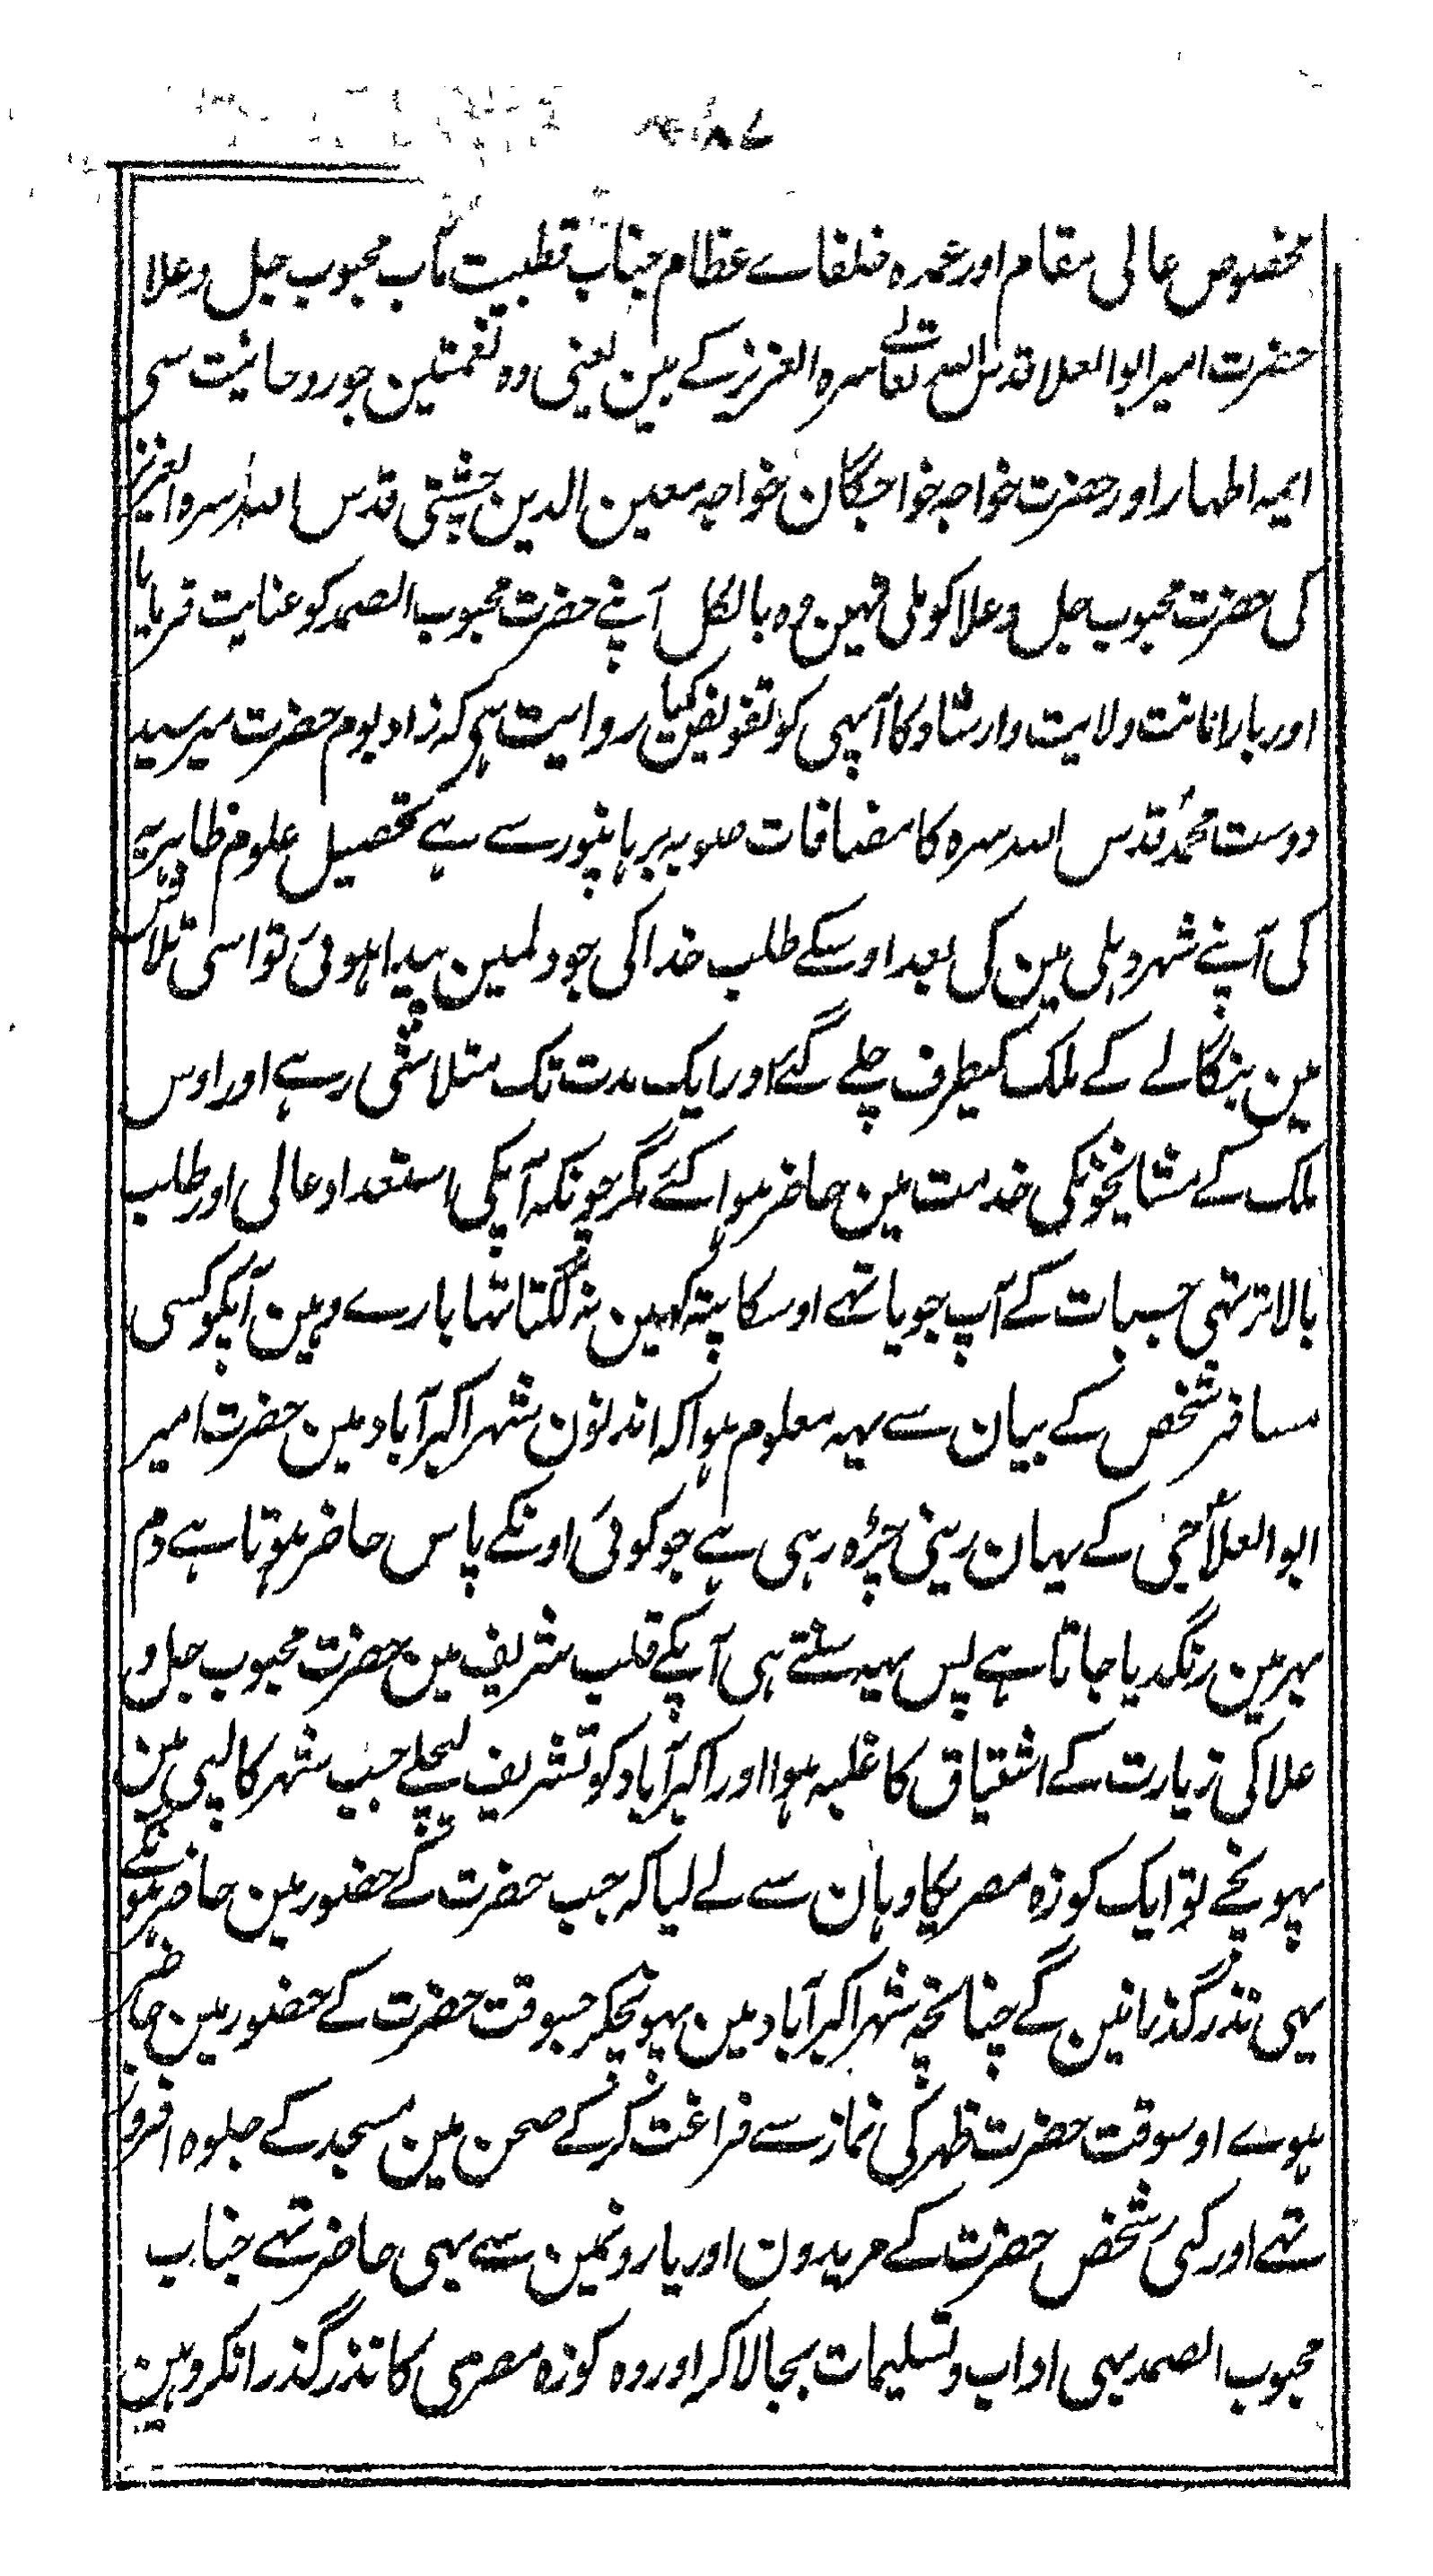 مخصوص عالی مقام اور عمدہ خلفاے عظام جناب قطبیت مآب محبوب جل وعلا
حضرت امیر ابو العلا قدس اللہ تعالے سرہ العزیز کے ہین یعنی وہ نعمتین جو روحانیت سی
ایمہ اطہار اور حضرت خواجہ خواجگان خواجہ معین الدین چشتی قدس اللہ سرہ العزیز
کی حضرت محبوب جل وعلا کو ملی تہین وہ بالکل آپنے حضرت محبوب الصمد کو عنایت فرمایا
اور بار امانت ولایت وارشاد کا آپہی کو تفویض کیا روایت ہی کہ زاد بوم حضرت میر سید
دوست محمد قدس اللہ سرہ کا مضافات صوبہ برہانپور سے ہے تحصیل علوم ظاہریہ
کی آپنے شہر دہلی مین کی بعد اوسکے طلب خدا کی جو دلمین پیدا ہوئی تو اسی تلاش
مین بنگالے کے ملک کیطرف چلے گئے اور ایک مدت تک متلاشی رہے اور اوس
ملک کے مشایخونکی خدمت مین حاضر ہوا کئے مگر چونکہ آپکی استعداد عالی اور طلب
بالاتر تہی جسبات کے آپ جویا تہے اوسکا پتہ کہین نہ لگتا تہا بارے وہین آپکو کسی
مسافر شخص کے بیان سے یہہ معلوم ہوا کہ اندنون شہر اکبرآباد مین حضرت امیر
ابو العلا جی کے یہان رینی چڑہ رہی ہے جو کوئی اونکے پاس حاضر ہوتا ہے دم
بہر مین رنگدیا جاتا ہے پس یہہ سنتے ہی آپکے قلب شریف مین حضرت محبوب جل و
علا کی زیارت کے اشتیاق کا غلبہ ہوا اور اکبرآباد کو تشریف لیچلے جب شہر کالپی مین
پہونچے تو ایک کوزہ مصریکا وہان سے لے لیا کہ جب حضرت کے حضور مین حاضر ہونگے
یہی نذر گذرانین گے چنانچہ شہر اکبرآباد مین پہونچکر جسوقت حضرت کے حضور مین حاضر
ہوے اوسوقت حضرت ظہر کی نماز سے فراغت کر کے صحن مین مسجد کے جلوہ افروز
تہے اور کئی شخص حضرت کے مریدون اور یارونمین سے بہی حاضر تہے جناب
محبوب الصمد بہی اداب وتسلیمات بجا لا کر اور وہ کوزہ مصری کا نذر گذرانکر وہین